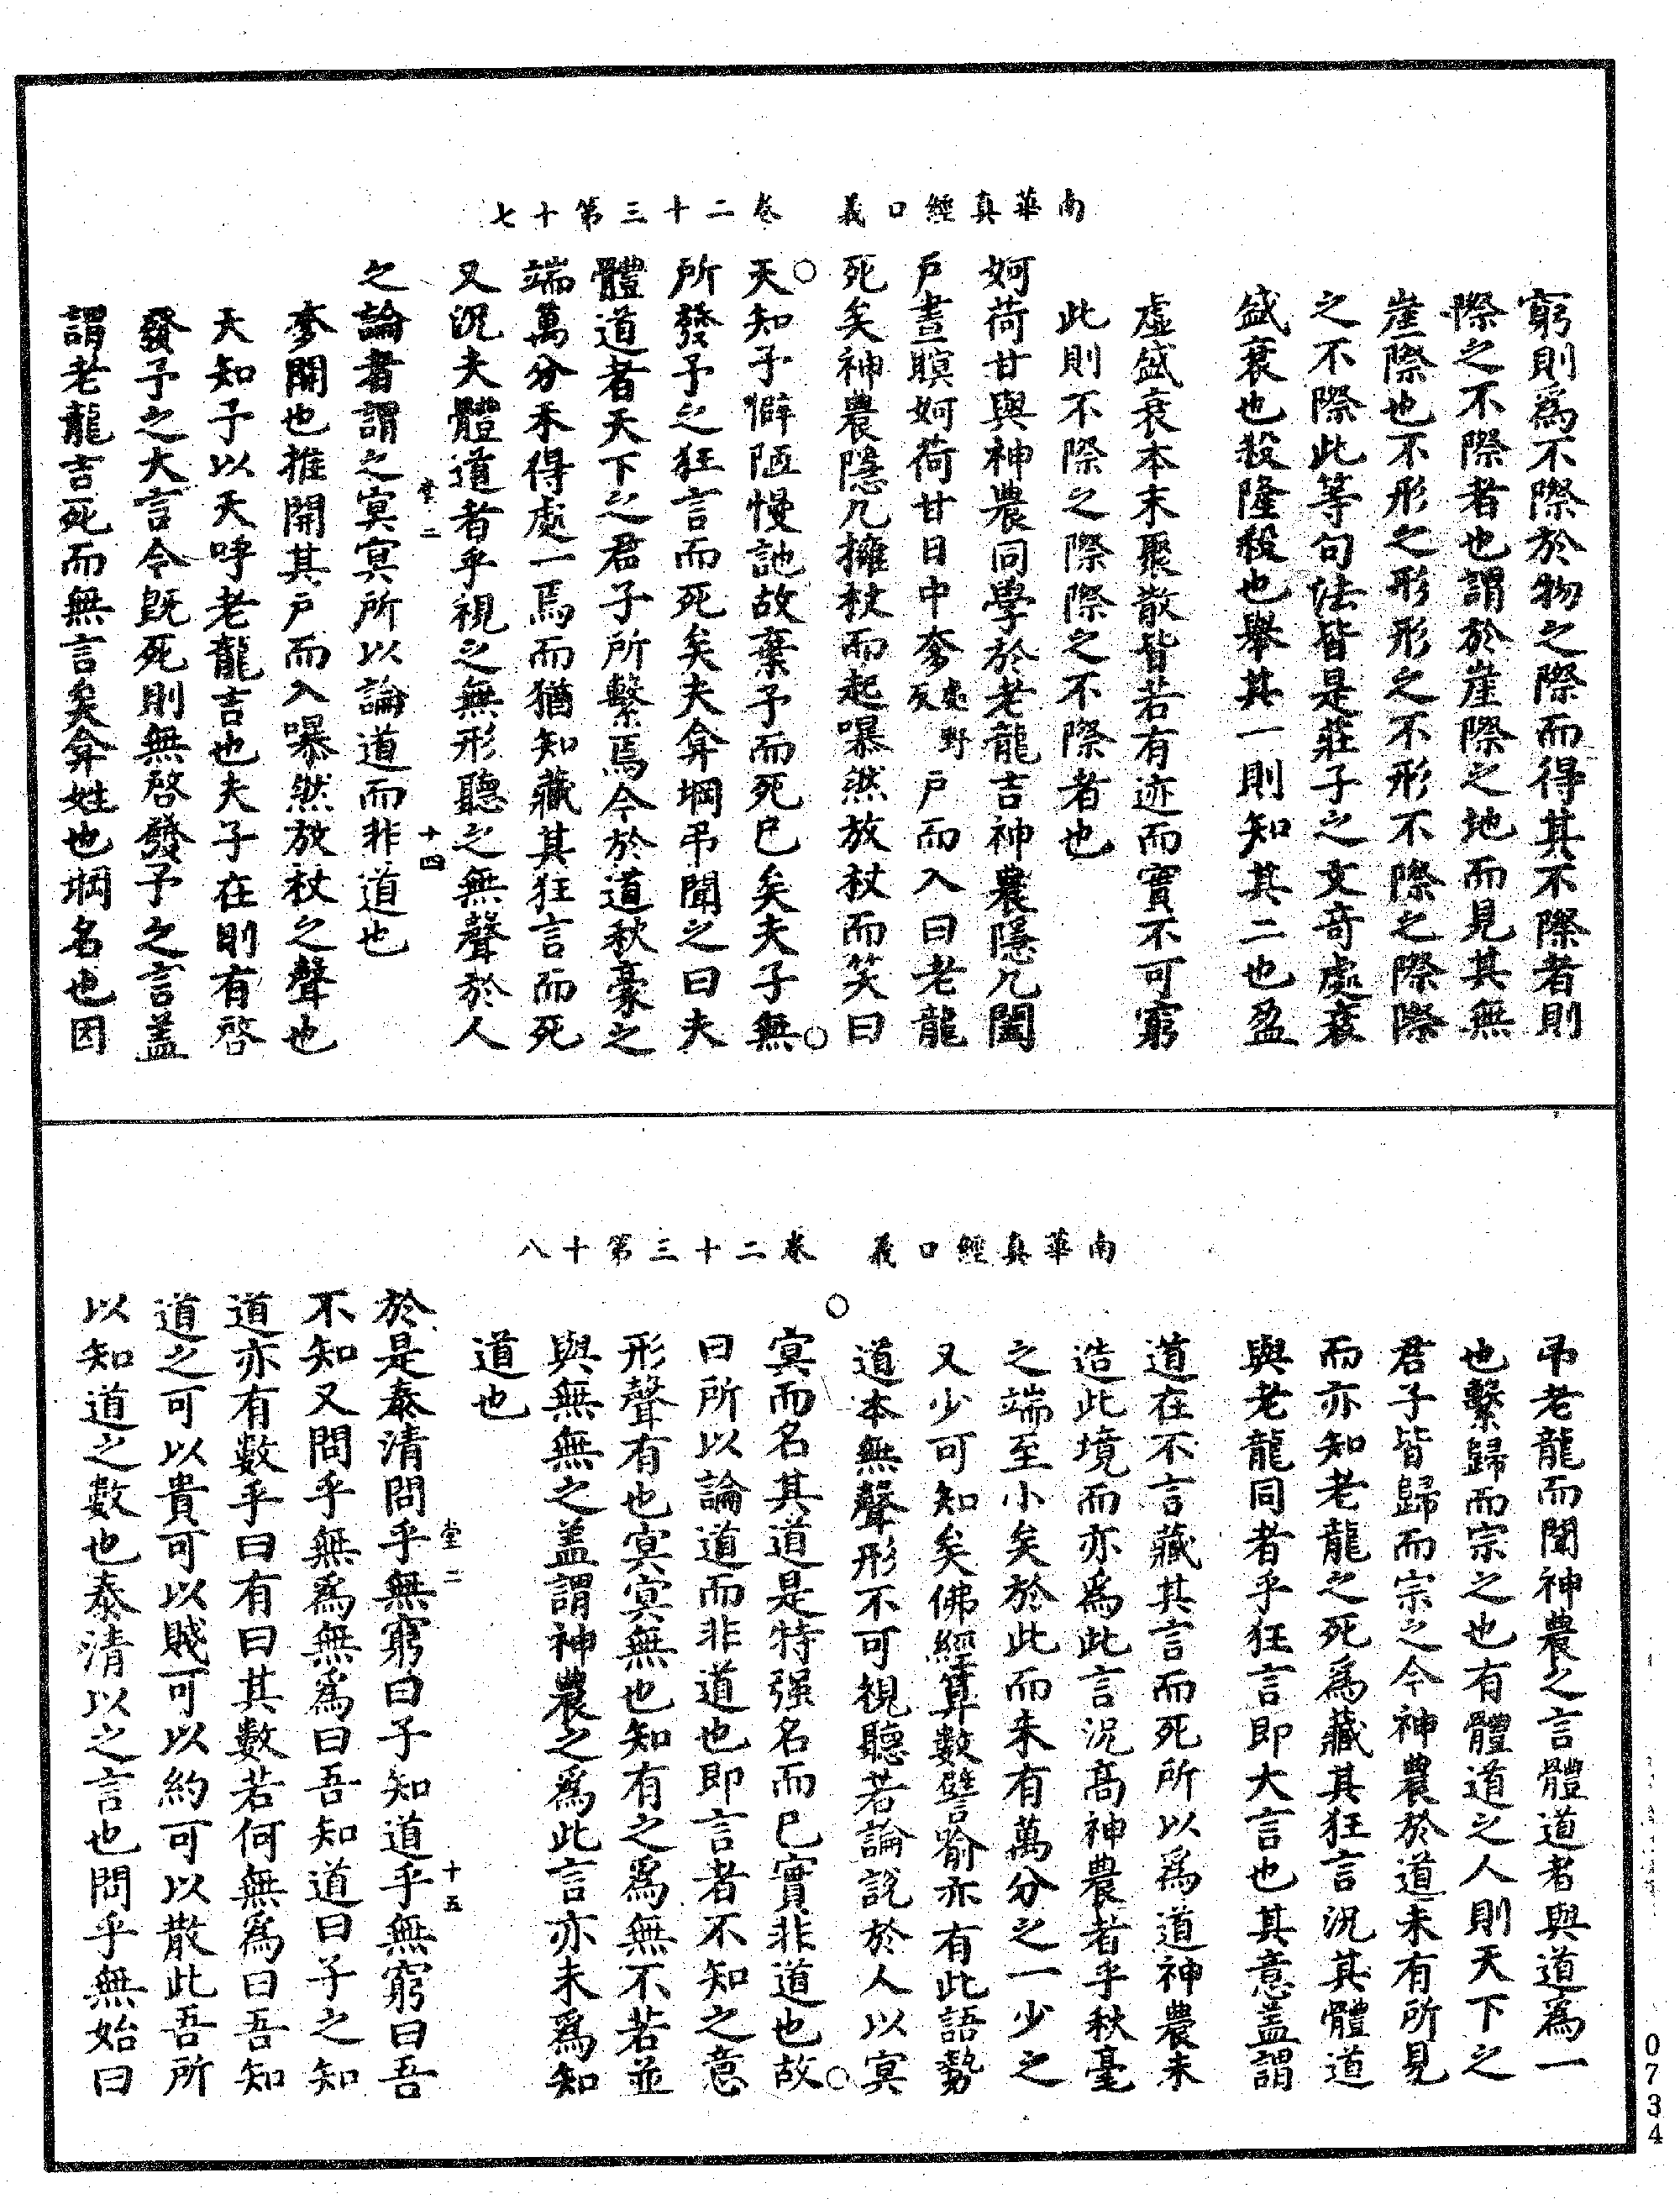 南華真經口義　卷二十三第十七
窮則爲不際於物之際而得其不際者則
際之不際者也謂於崖際之地而見其無
崖際也不形之形形之不形不際之際際
之不際此等句法皆是莊子之文奇處衰
盛衰也殺隆殺也舉其一則知其二也盈
虛盛衰本末聚散皆若有迹而實不可窮
此則不際之際際之不際者也
妸荷甘與神農同學於老龍吉神農隱几闔
戶晝瞑妸荷甘日中奓處野反戶而入曰老龍
死矣神農隱几擁杖而起嚗然放杖而笑曰
天知予僻陋慢訑故棄予而死已矣夫子無
所發予之狂言而死矣夫弇堈弔聞之曰夫
體道者天下之君子所繫焉今於道秋豪之
端萬分未得處一焉而猶知藏其狂言而死
又況夫體道者乎視之無形聽之無聲於人
堂二　十四
之論者謂之冥冥所以論道而非道也
奓開也推開其戶而入嚗然放杖之聲也
天知予以天呼老龍吉也夫子在則有啓
發予之大言今既死則無啓發予之言蓋
謂老龍吉死而無言矣弇姓也堈名也因
南華真經口義　卷二十三第十八
弔老龍而聞神農之言體道者與道爲一
也繫歸而宗之也有體道之人則天下之
君子皆歸而宗之今神農於道未有所見
而亦知老龍之死爲藏其狂言況其體道
與老龍同者乎狂言即大言也其意蓋謂
道在不言藏其言而死所以爲道神農未
造此境而亦爲此言況高神農者乎秋毫
之端至小矣於此而未有萬分之一少之
又少可知矣佛經算數譬喻亦有此語勢
道本無聲形不可視聽若論說於人以冥
冥而名其道是特强名而已實非道也故
曰所以論道而非道也即言者不知之意
形聲有也冥冥無也知有之爲無不若並
與無無之蓋謂神農之爲此言亦未爲知
道也
堂二　十五
於是泰清問乎無窮曰子知道乎無窮曰吾
不知又問乎無爲無爲曰吾知道曰子之知
道亦有數乎曰有曰其數若何無爲曰吾知
道之可以貴可以賤可以約可以散此吾所
以知道之數也泰清以之言也問乎無始曰
0734